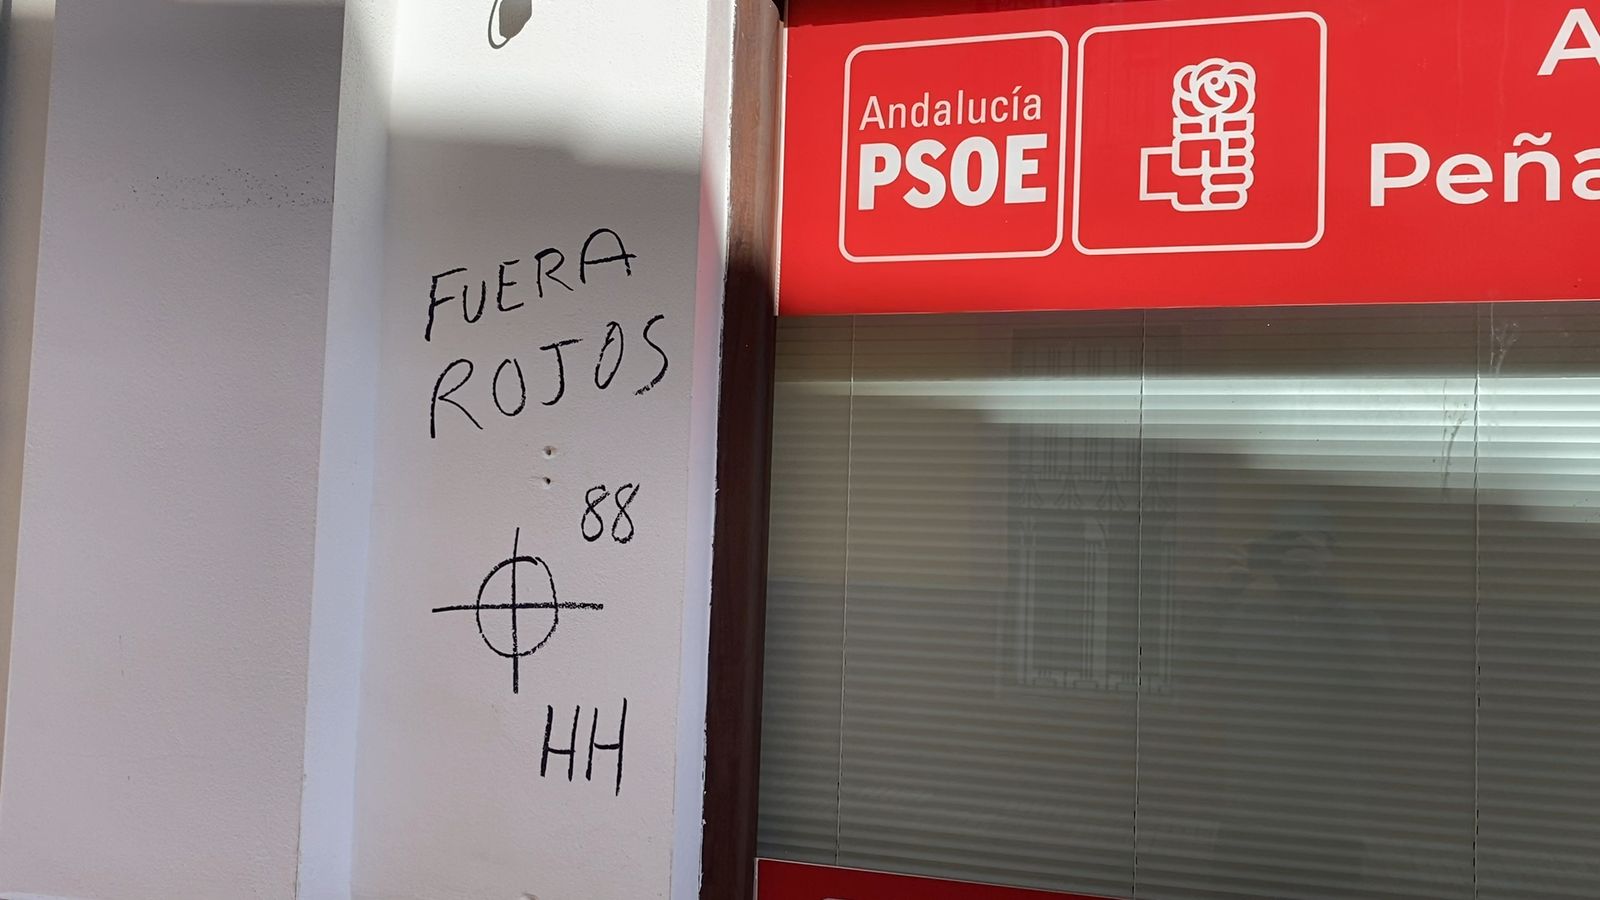 FUERA
ROJOS
88
HH
Andalucía
PSOE